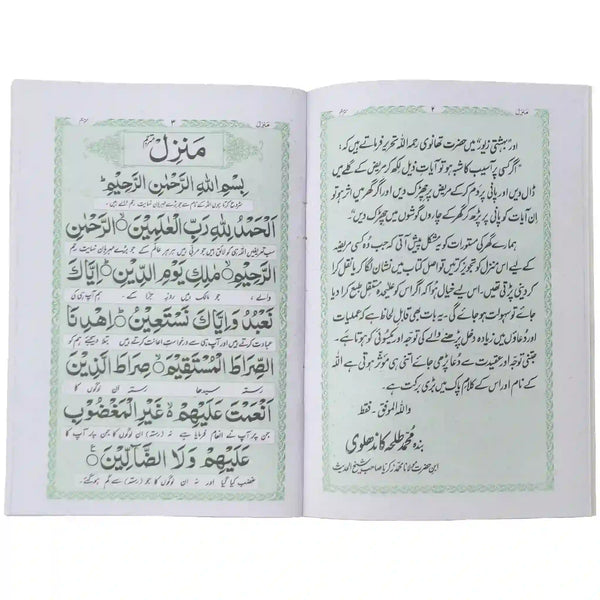 منزل ۲ مترجم
اور "بہشتی زیور" میں حضرت تھانوی رحمہ اللہ تحریر فرماتے ہیں کہ:
"اگر کسی پر آسیب کا شبہ ہو تو آیات ذیل لکھ کر مریض کے گلے میں
ڈال دیں اور پانی پر دم کر کے مریض پر چھڑک دیں اور اگر گھر میں اثر ہو تو
اِن آیات کو پانی پر پڑھ کر گھر کے چاروں گوشوں میں چھڑک دیں"
ہمارے گھر کی مستورات کو یہ مشکل پیش آتی کہ جب وہ کسی مریضہ
کے لیے اس منزل کو تجویز کرتیں تو اصل کتاب میں نشان لگا کر یا نقل کرا
کر دینی پڑتی تھیں۔ اس لیے خیال ہوا کہ اگر اس کو علیحدہ مستقل طبع کرا دیا
جائے تو سہولت ہو جائے گی۔ یہ بات بھی قابلِ لحاظ ہے کہ عملیات
اور دُعاؤں میں زیادہ دخل پڑھنے والے کی توجہ اور یکسوئی کو ہوتا ہے۔
جتنی توجہ اور عقیدت سے دُعا پڑھی جائے اتنی ہی مؤثر ہوتی ہے اللہ
کے نام اور اس کے کلامِ پاک میں بڑی برکت ہے۔
واللہ الموفق۔ فقط
بندہ محمد طلحہ کاندھلوی
ابن حضرت مولانا محمد زکریا صاحب شیخ الحدیث
منزل ۳ مترجم
مَنزِل مترجم
بِسْمِ اللهِ الرَّحْمٰنِ الرَّحِيْمِ
شروع کرتا ہوں اللہ کے نام سے جو بڑے مہربان نہایت رحم والے ہیں۔
اَلْحَمْدُ لِلّٰهِ رَبِّ الْعٰلَمِيْنَ ۙ الرَّحْمٰنِ
سب تعریفیں اللہ ہی کو لائق ہیں جو مربی ہیں ہر ہر عالم کے۔ جو بڑے مہربان نہایت رحم
الرَّحِيْمِ ۙ مٰلِكِ يَوْمِ الدِّيْنِ ؕ اِيَّاكَ
والے ہیں، جو مالک ہیں روزِ جزا کے۔ ہم آپ ہی کی
نَعْبُدُ وَاِيَّاكَ نَسْتَعِيْنُ ؕ اِهْدِنَا
عبادت کرتے ہیں اور آپ ہی سے درخواست اعانت کرتے ہیں۔ بتلا دیجئے ہم کو
الصِّرَاطَ الْمُسْتَقِيْمَ ۙ صِرَاطَ الَّذِيْنَ
رستہ سیدھا رستہ ان لوگوں کا
اَنْعَمْتَ عَلَيْهِمْ ۙ غَيْرِ الْمَغْضُوْبِ
جن پر آپ نے انعام فرمایا ہے نہ (رستہ) ان لوگوں کا جن پر آپ کا
عَلَيْهِمْ وَلَا الضَّآلِّيْنَ ۧ
غضب کیا گیا اور نہ ان لوگوں کا جو (رستہ) سے گم ہو گئے۔